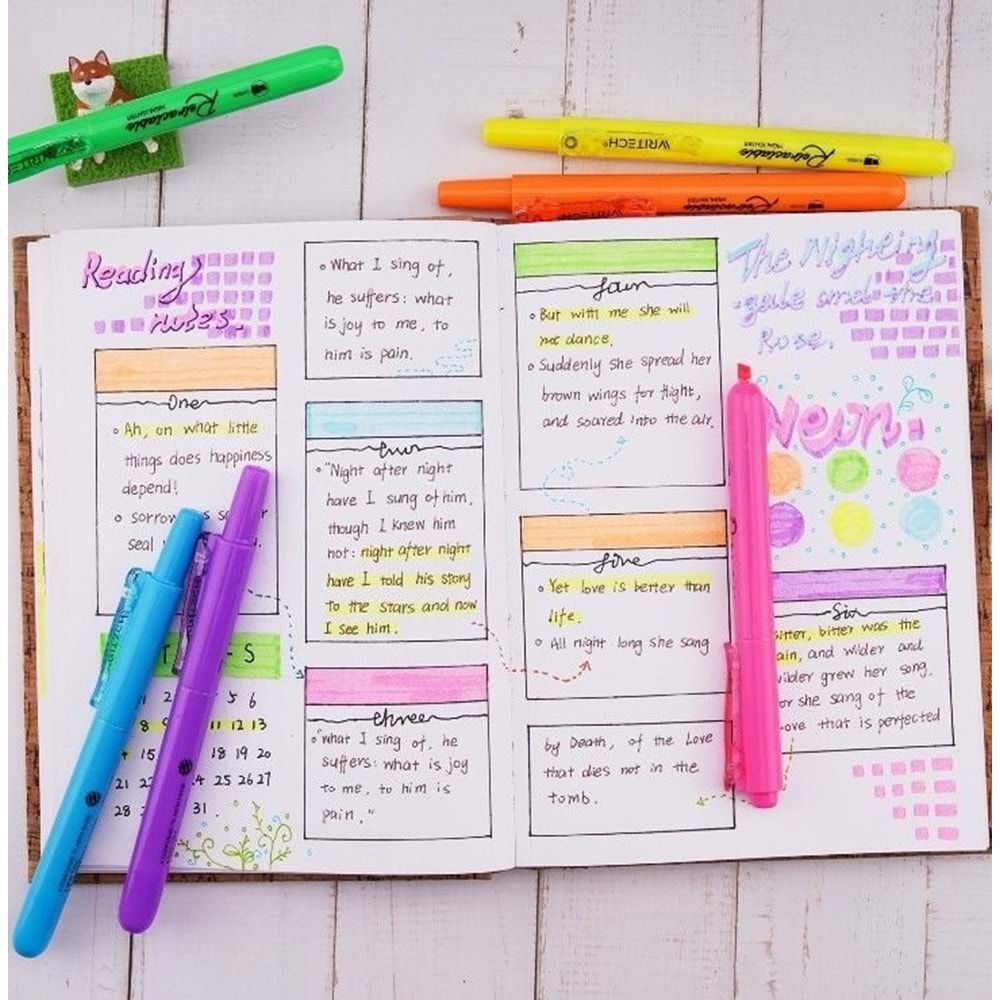 Reading
notes.
One
Ah, on what little
things does happiness
depend!
sorrow
seal
S
1 2 5 6
8 9 11 12 13
15 18 19 20
21 22 25 26 27
28 31.
What I sing of,
he suffers: what
is joy to me, to
him is pain.
"Night after night
have I sung of him,
though I knew him
not: night after night
have I told his story
to the stars and now
I see him.
three
"what I sing of, he
suffers: what is joy
to me, to him is
pain."
But with me she will
not dance.
Suddenly she spread her
brown wings for flight,
and soared into the air.
five
Yet love is better than
life.
All night long she sang
by Death, of the Love
that dies not in the
tomb.
The Nightin
gale and the
Rose.
Neon.
Six
bitter was the
and wilder and
grew her song.
she sang of the
that is perfected
Retractable
HIGHLIGHTER
WRITECH
Retractable
HIGHLIGHTER
WRITECH
Retractable
HIGHLIGHTER
WRITECH